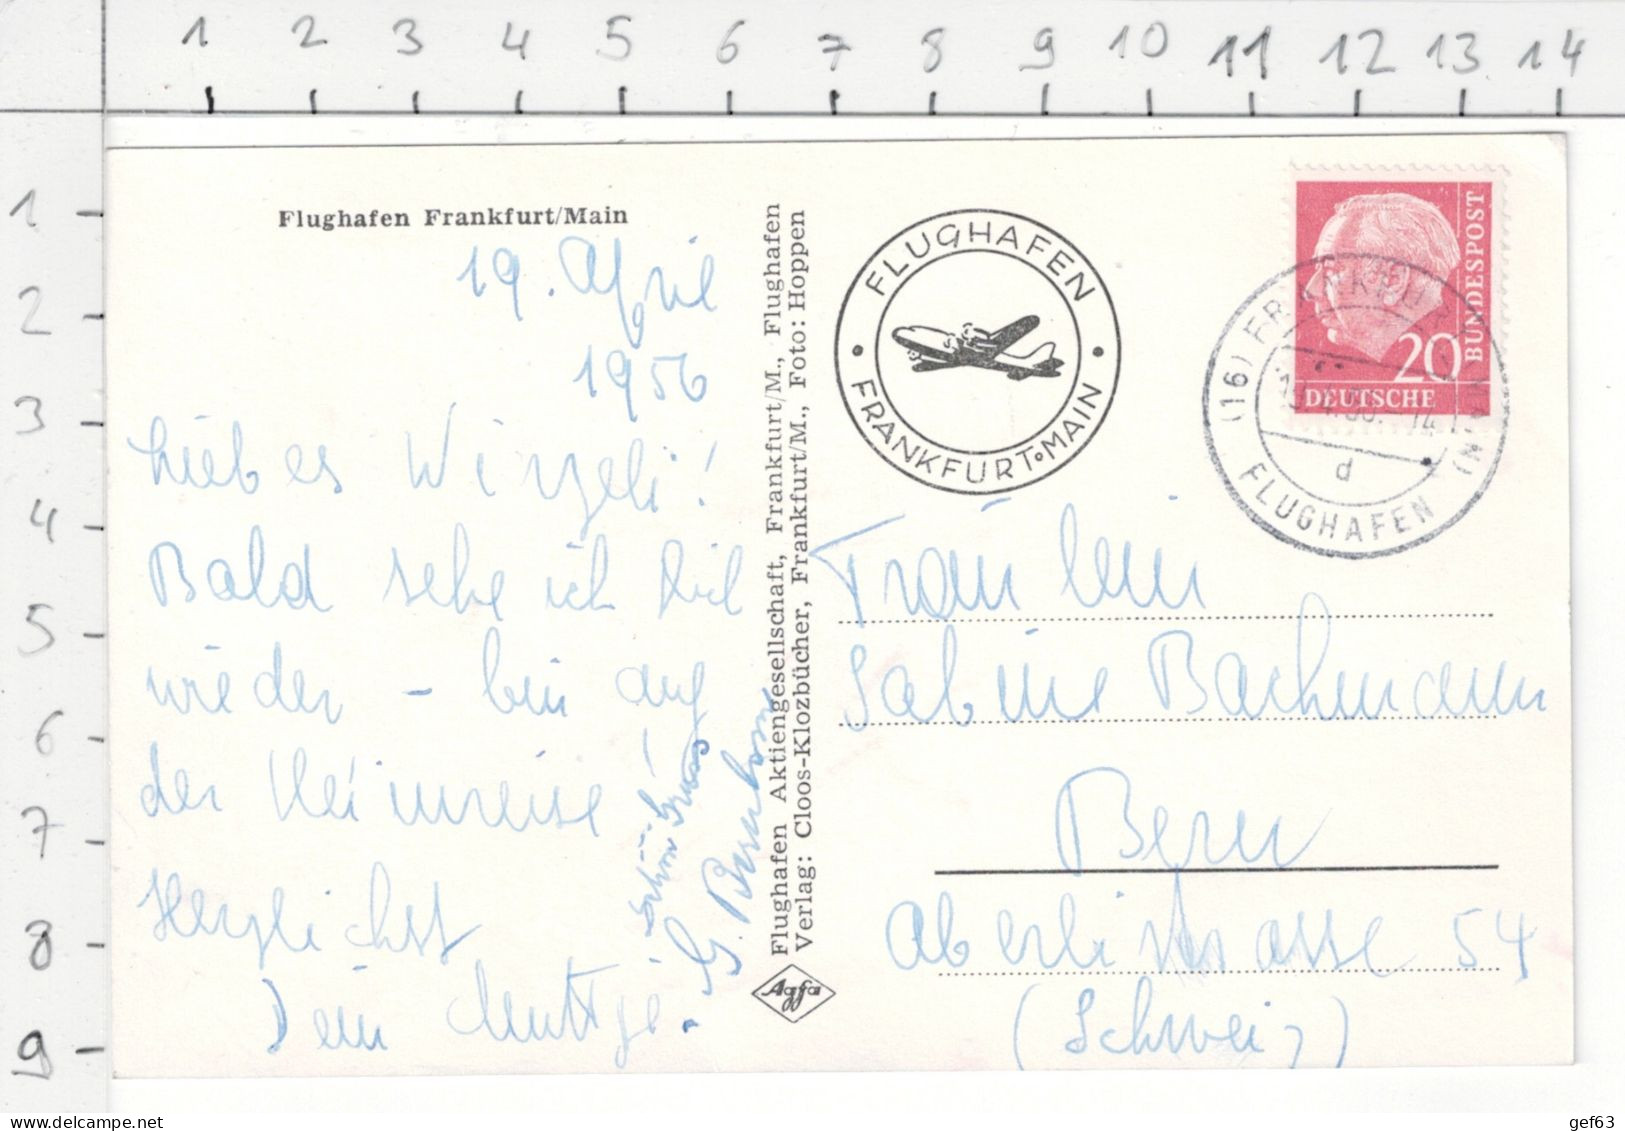 1 2 3 4 5 6 7 8 9 10 11 12 13 14
1
2
3
4
5
6
7
8
9
Flughafen Frankfurt/Main
19. April
1956
Liebes Wirzeli!
Bald sehe ich Dich
wieder - bin auf
der Heimreise!
Herzlichst
Dein Muttje.
Flughafen Aktiengesellschaft, Frankfurt/M., Flughafen
Verlag: Cloos-Klozbücher, Frankfurt/M., Foto: Hoppen
Agfa
FLUGHAFEN
FRANKFURT • MAIN
DEUTSCHE
BUNDESPOST
20
(16) FRANKFURT (MAIN)
d
FLUGHAFEN
Fräulein
Sabine Bachmann
Bern
Aberlistrasse 54
(Schweiz)
gef63